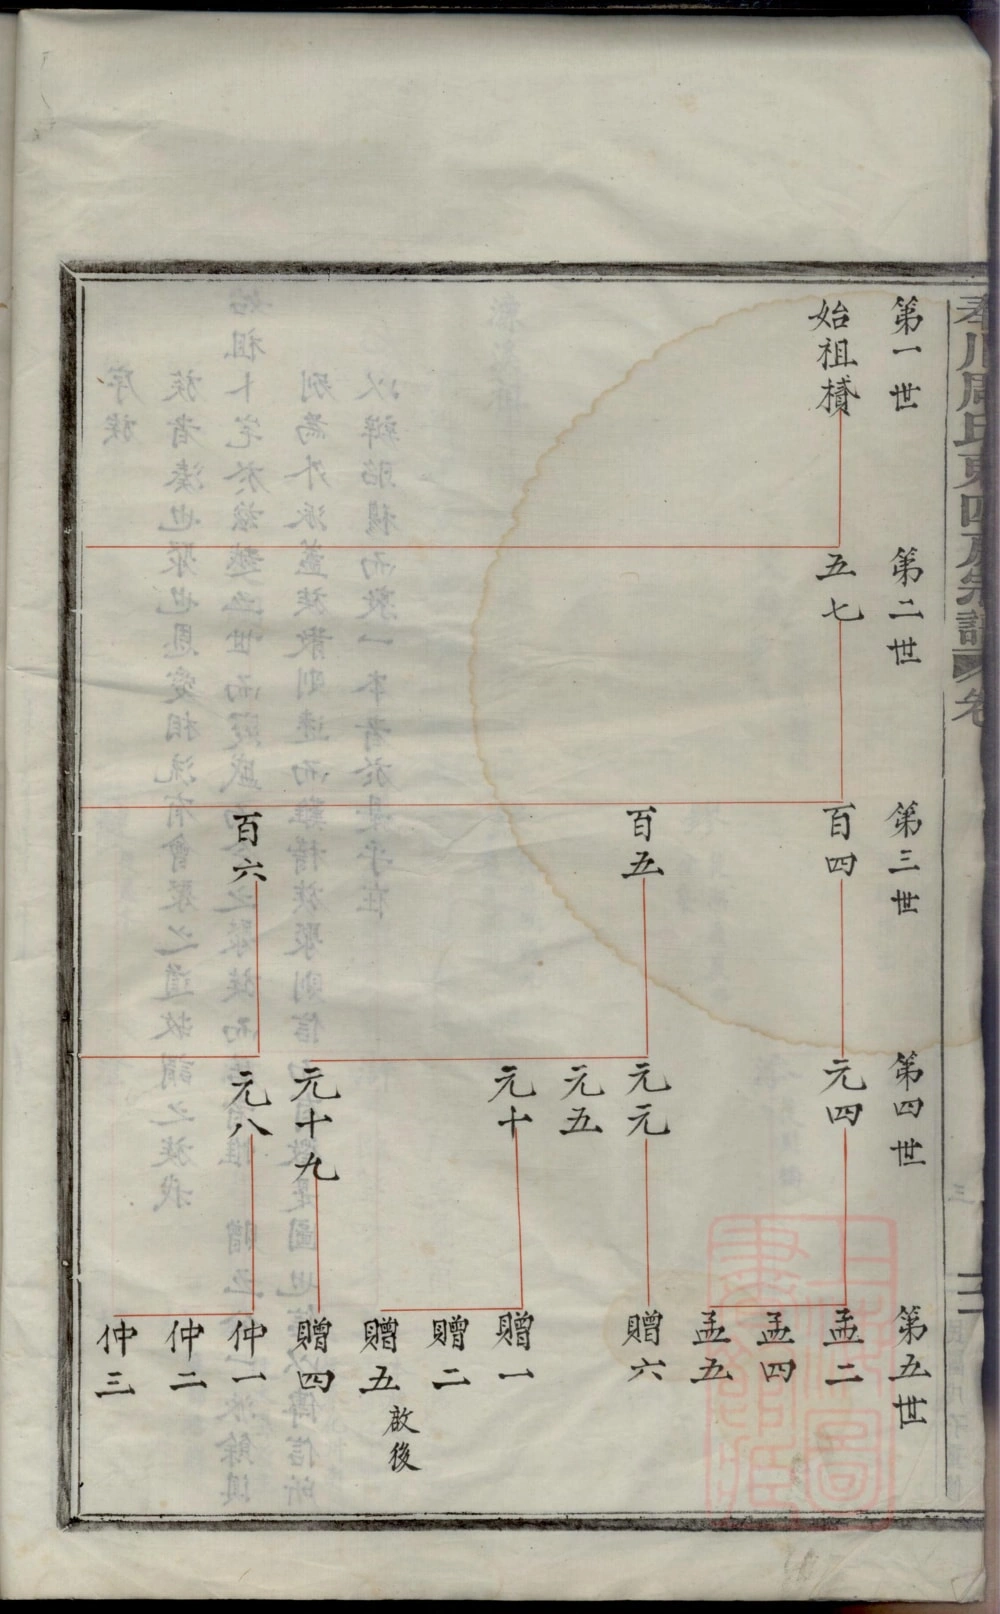 奉川周氏東四房宗譜
卷
三
第一世
始祖樍
第二世
五七
第三世
百四
百五
百六
第四世
元四
元元
元五
元十
元十九
元八
第五世
孟二
孟四
孟五
贈六
贈一
贈二
贈五
啟後
贈四
仲一
仲二
仲三